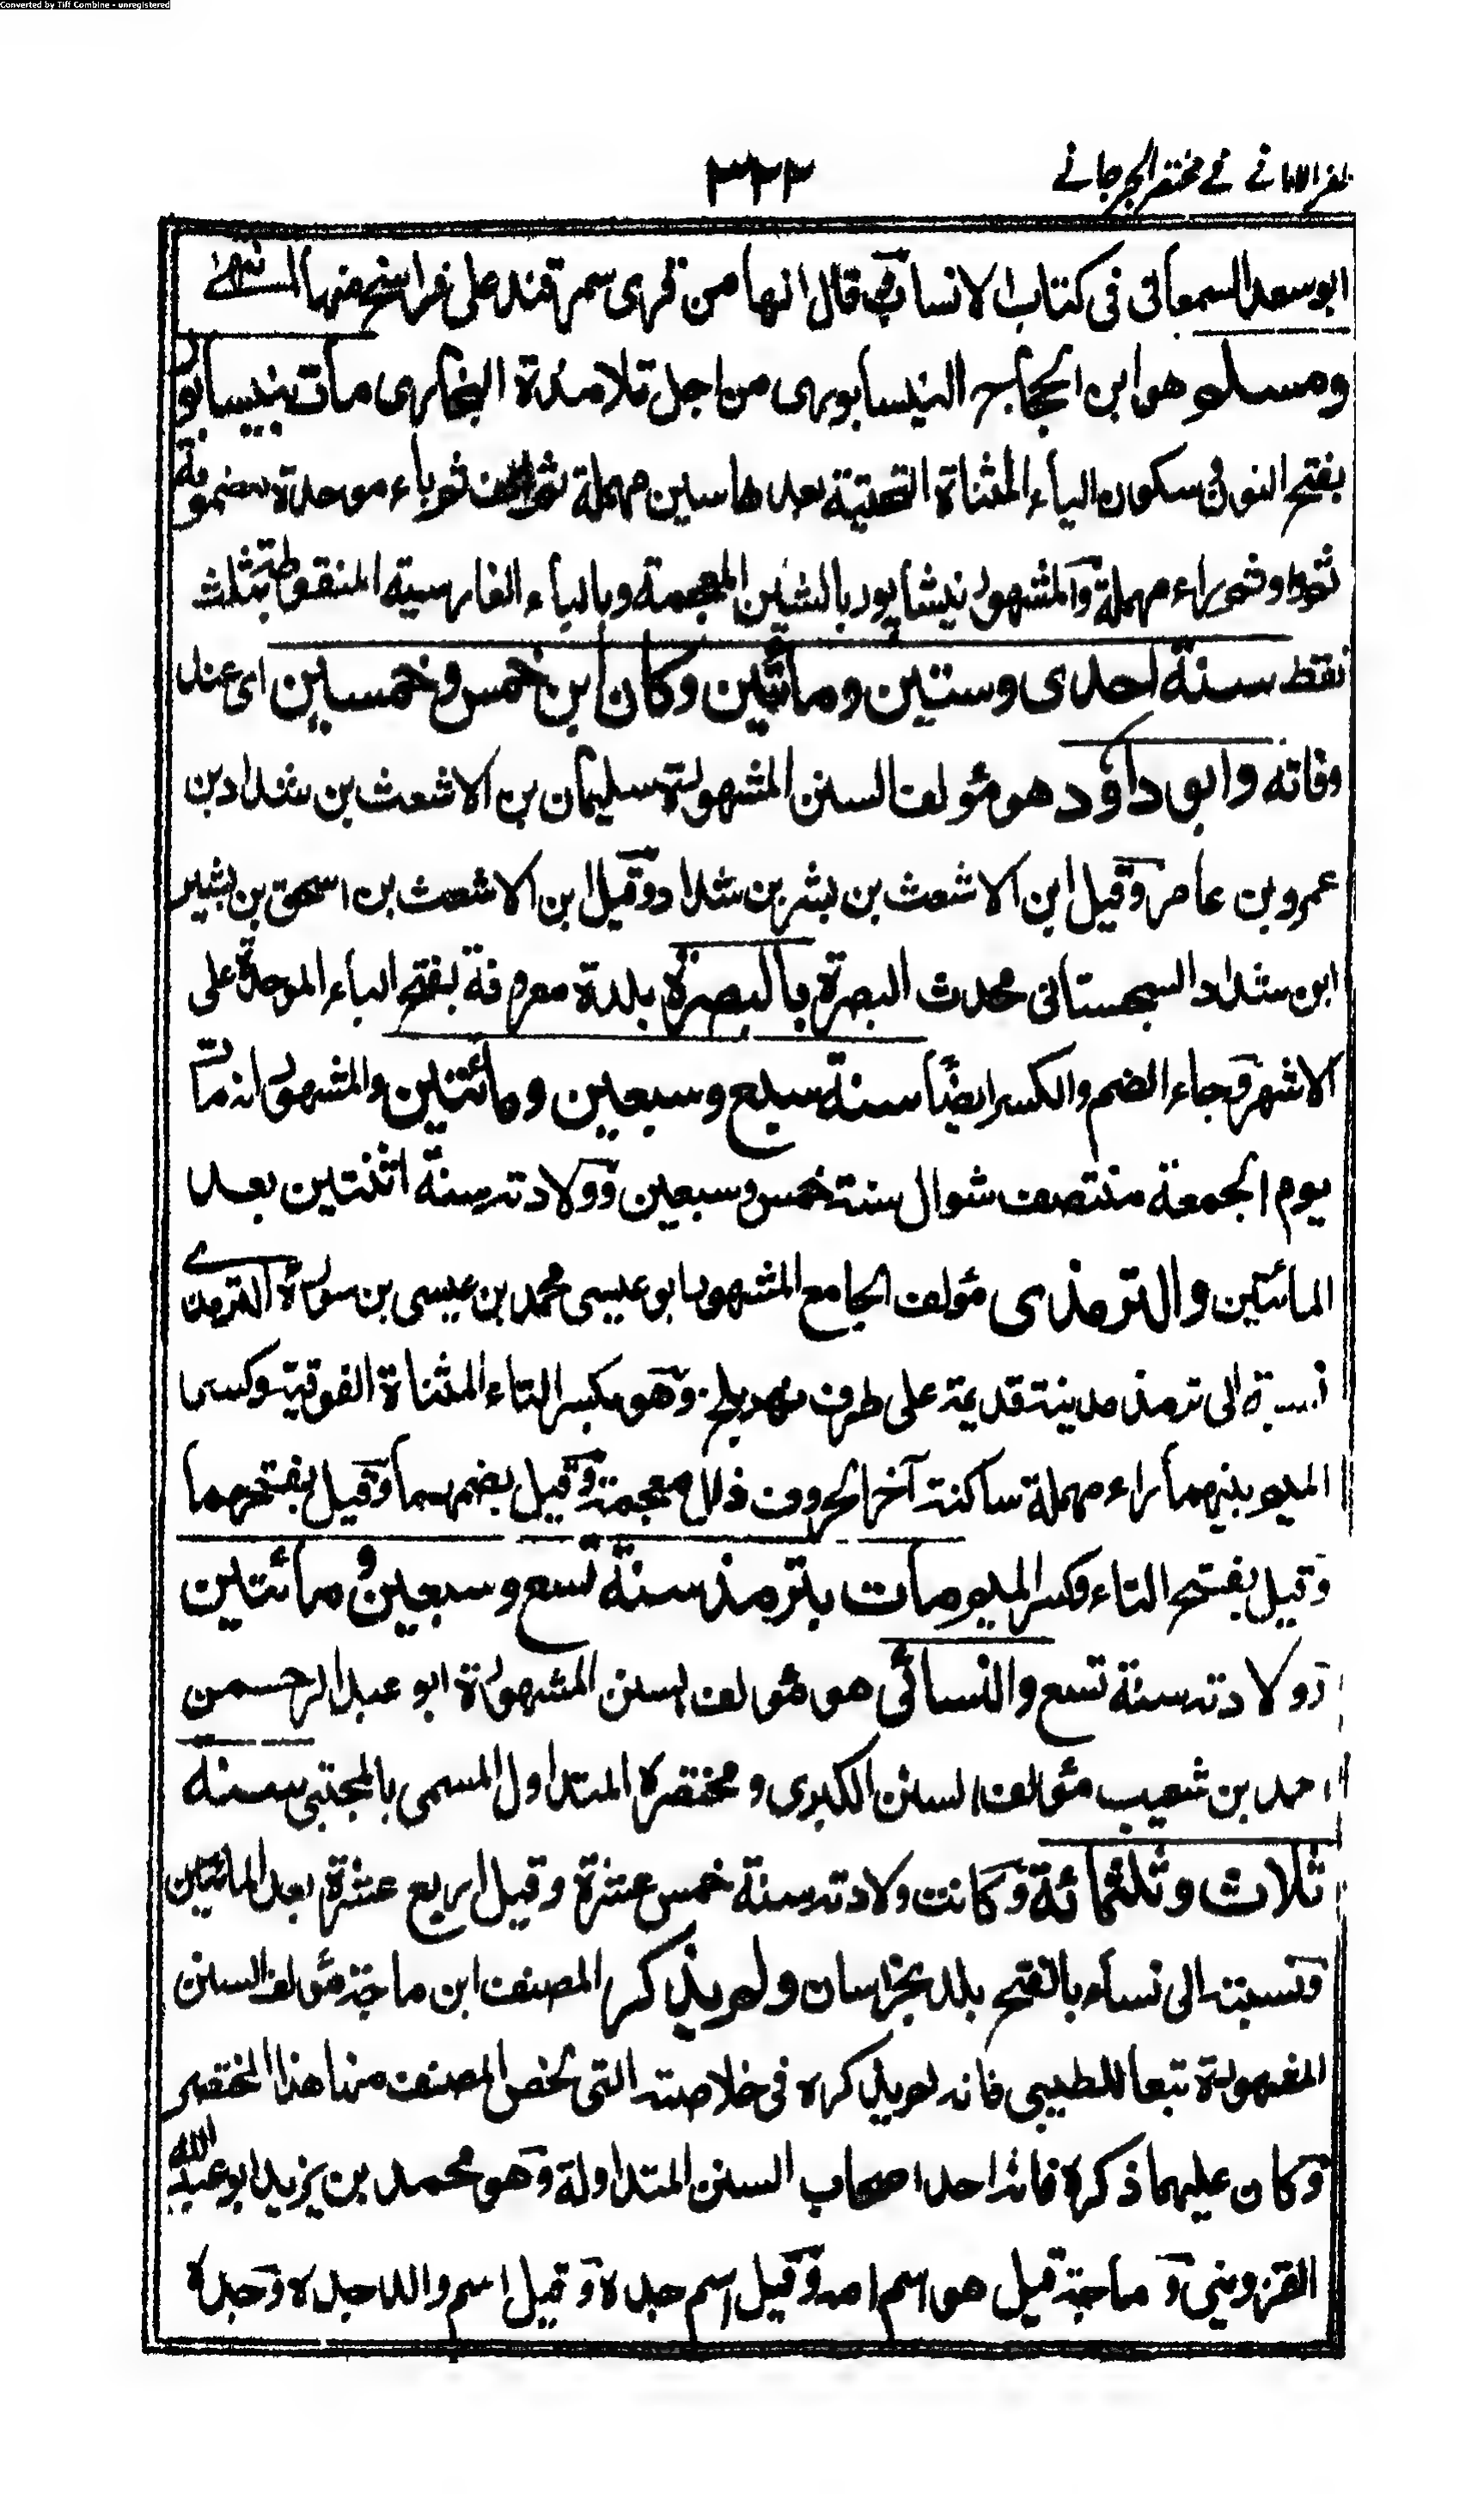 Converted by Tiff Combine - unregistered
ظفر الامانى فى مختصر الجرجانے
٣٢٢
ابو سعد السمعانى فى كتاب الانساب قال انها من قرى سمرقند على فراسخ منها انتهى
ومسلم هو ابن الحجاج النيسابورى من اجل تلامذة البخارى مات بنيسابور
بفتح النون وسكون الياء المثناة التحتية بعدها سين مهملة ثم الف ثم باء موحدة مضمومة
ثم واو ثم راء مهملة والمشهور نيشاپور بالشين المعجمة وبالباء الفارسية المنقوطة بثلث
نقط سنة احدى وستين ومائتين وكان ابن خمس وخمسين اى عند
وفاته وابو داؤد هو مؤلف السنن المشهورة سليمان بن الاشعث بن شداد بن
عمرو بن عامر وقيل ابن الاشعث بن بشر بن شداد وقيل ابن الاشعث بن اسحق بن بشير
ابن شداد السجستانى محدث البصرة بالبصرة بلدة معروفة بفتح الباء الموحدة على
الاشهر وجاء الضم والكسر ايضًا سنة سبع وسبعين ومائتين والمشهور انه مات
يوم الجمعة منتصف شوال سنة خمس وسبعين وولادته سنة اثنتين بعد
المائتين والترمذى مؤلف الجامع المشهور ابو عيسى محمد بن عيسى بن سورة الترمذے
نسبة الى ترمذ مدينة قديمة على طرف نهر بلخ وهو بكسر التاء المثناة الفوقية وكسر
الميم وبينهما راء مهملة ساكنة آخر الحروف ذال معجمة وقيل بضمهما وقيل بفتحهما
وقيل بفتح التاء وكسر الميم مات بترمذ سنة تسع وسبعين و مائتين
وولادته سنة تسع والنسائى هو مؤلف السنن المشهورة ابو عبد الرحمن
احمد بن شعيب مؤلف السنن الكبرى ومختصره المتداول المسمى بالمجتبى سنة
ثلاث وثلثمائة وكانت ولادته سنة خمس عشرة وقيل اربع عشرة بعد المائتين
ونسبته الى نساء بالفتح بلد بخراسان ولم يذكر المصنف ابن ماجة مؤلف السنن
المشهورة تبعا للطيبى فانه لم يذكره فى خلاصته التى لخص المصنف منها هذا المختصر
وكان عليهما ذكره فانه احد اصحاب السنن المتداولة وهو محمد بن يزيد ابو عبد الله
القزوينى و ماجة قيل هو اسم امه وقيل اسم جده وقيل اسم والد جده وجده